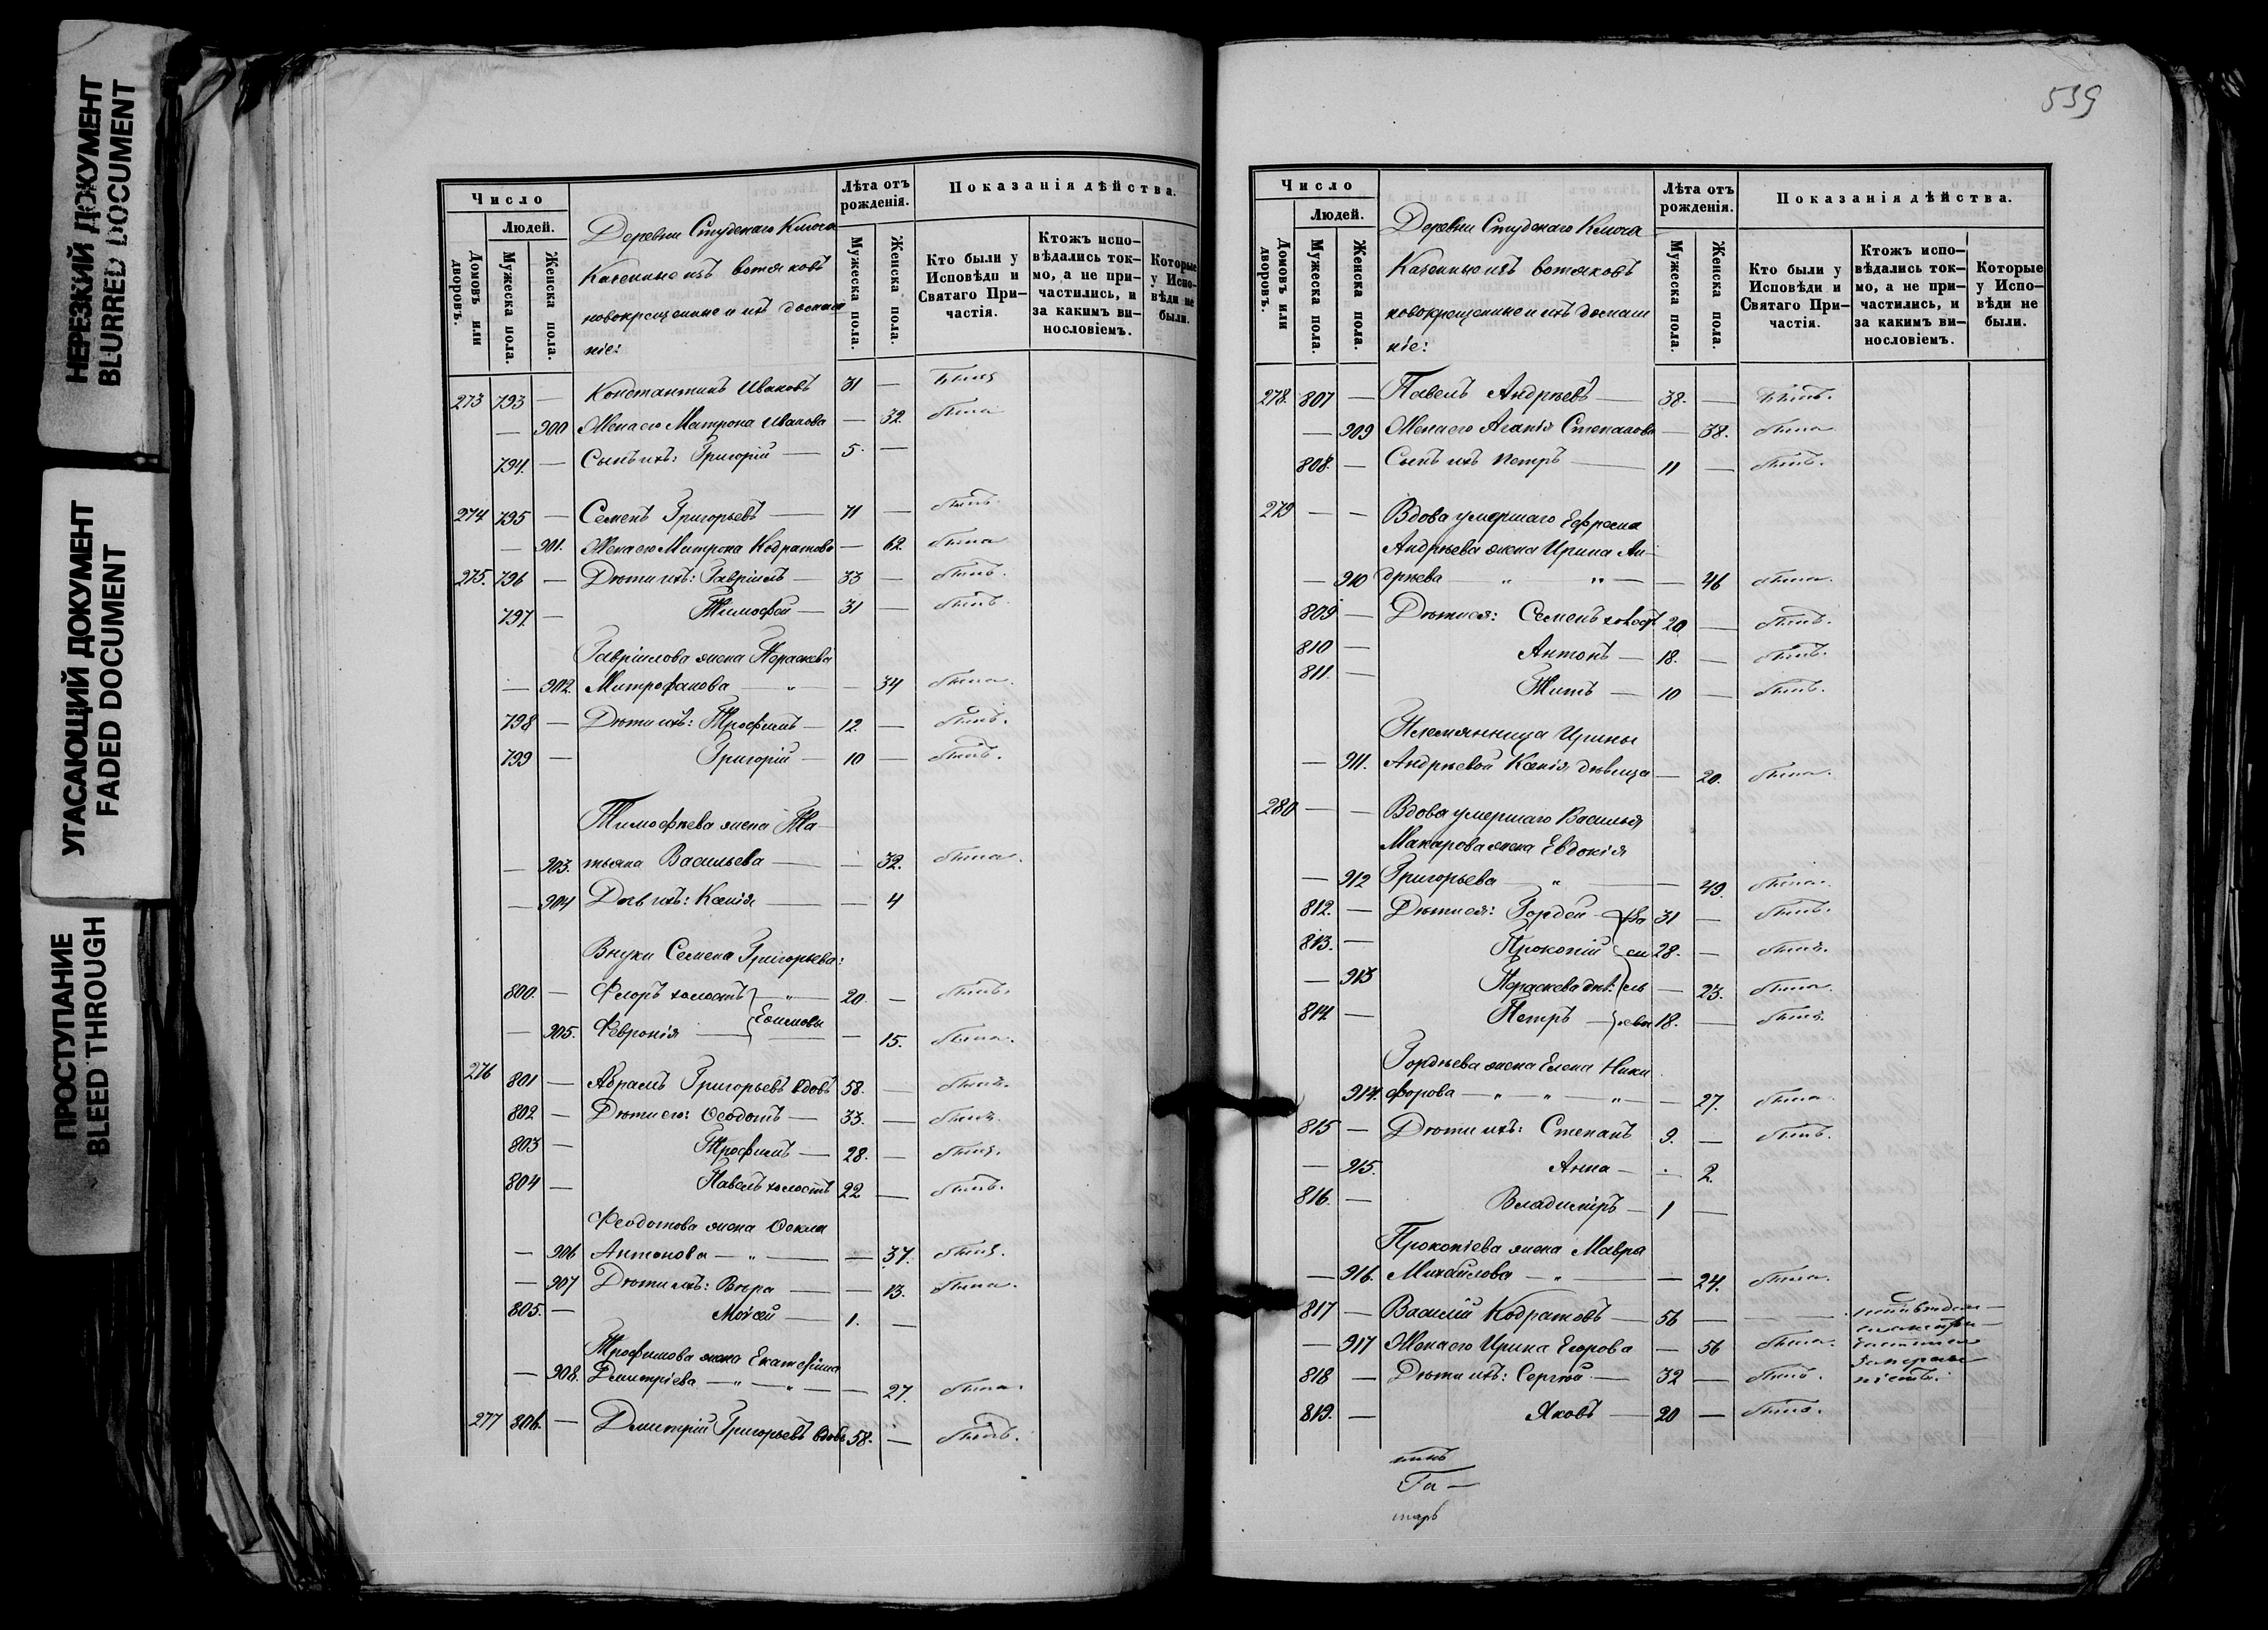 НЕРЕЗКИЙ ДОКУМЕНТ
BLURRED DOCUMENT
УГАСАЮЩИЙ ДОКУМЕНТ
FADED DOCUMENT
ПРОСТУПАНИЕ
BLEED THROUGH
Число
Людей.
Домовъ или дворовъ.
Мужеска пола.
Женска пола.
Деревни Студенаго Ключа
Казенные изъ вотяковъ
новокрещенные и ихъ домаш
ніе:
Лѣта отъ рожденія.
Мужеска пола.
Женска пола.
Показанія дѣйства.
Кто были у Исповѣди и Святаго Причастія.
Ктожъ исповѣдались токмо, а не причастились, и за какимъ винословіемъ.
Которые у Исповѣди не были.
273 793 — Константинъ Ивановъ 31 — былъ
— 900 Жена его Матрона Иванова — 32. была
794. — Сынъ ихъ: Григорій — 5. —
274 795 — Семенъ Григорьевъ — 71 — былъ
— 901. Жена его Матрона Кодратова — 62. была
275. 796 — Дѣти ихъ: Гавріилъ — 33 — былъ.
797. — Тимофей — 31 — былъ
Гавріилова жена Параскева
— 902. Митрофанова — „ — — 34 была.
798 — Дѣти ихъ: Трофимъ — 12. — былъ.
799 — Григорій — 10 — былъ.
Тимофѣева жена Та-
— 903. тьяна Васильева — — 32. была.
— 904 Дочь ихъ: Ксенія — — 4
Внуки Семена Григорьева:
800. — Флоръ холостъ — „ — 20. — былъ.
Ефимовы
— 905. Февронія — — 15. была.
276 801 — Абрамъ Григорьевъ вдовъ 58. — былъ.
802 — Дѣти его: Ѳеодотъ — 33. — былъ.
803 — Трофимъ — 28. — былъ.
804 — Павелъ холостъ 22 — былъ.
Феодотова жена Ѳекла
— 906 Антонова — „ — — 37. была.
— 907 Дѣти ихъ: Вѣра — — 13. была.
805. — Моѵсей — 1. —
Трофимова жена Екатерина
— 908. Дмитріева — „ — „ — — 27. была.
277 806. — Дмитрій Григорьевъ вдовъ 58. — былъ.
539
Число
Людей.
Домовъ или дворовъ.
Мужеска пола.
Женска пола.
Деревни Студенаго Ключа
Казенные изъ вотяковъ
новокрещенные и ихъ домаш
ніе:
Лѣта отъ рожденія.
Мужеска пола.
Женска пола.
Показанія дѣйства.
Кто были у Исповѣди и Святаго Причастія.
Ктожъ исповѣдались токмо, а не причастились, и за какимъ винословіемъ.
Которые у Исповѣди не были.
278. 807 — Павелъ Андрѣевъ — 38. — былъ.
— 909 Жена его Агапія Степанова — 38. была
808. — Сынъ ихъ Петръ — 11 — былъ.
279 — — Вдова умершаго Ефрема
Андрѣева жена Ирина Ан-
— 910 дрѣева — „ — „ — — 46 была.
809 — Дѣти ея: Семенъ холост 20 — былъ.
810 — Антонъ — 18. — былъ.
811. — Титъ — 10 — былъ.
Племянница Ирины
— 911. Андрѣевой Ксенія дѣвица — 20. была.
280 — — Вдова умершаго Василья
Макарова жена Евдокія
— 912 Григорьева — „ — — 49. была.
812. — Дѣти ея: Гордей — Ва 31 — былъ.
813. — Прокопій си 28. — былъ.
— 913 Параскева дѣв. ль — 23. была.
814 — Петръ — евы 18. — былъ.
Гордѣева жена Елена Ники
914. форова — „ — „ — „ — — 27. была.
815 — Дѣти ихъ: Степанъ 9. — былъ.
— 915. Анна — — 2.
816. — Владиміръ — 1 —
Прокопіева жена Мавра
— 916. Михайлова — „ — — 24. была.
817 — Василій Кодратовъ — 56 — —
— 917 Жена его Ирина Егорова — 56 была.
818 — Дѣти ихъ: Сергѣй — 32 — былъ.
819. — Яковъ — 20 — былъ.